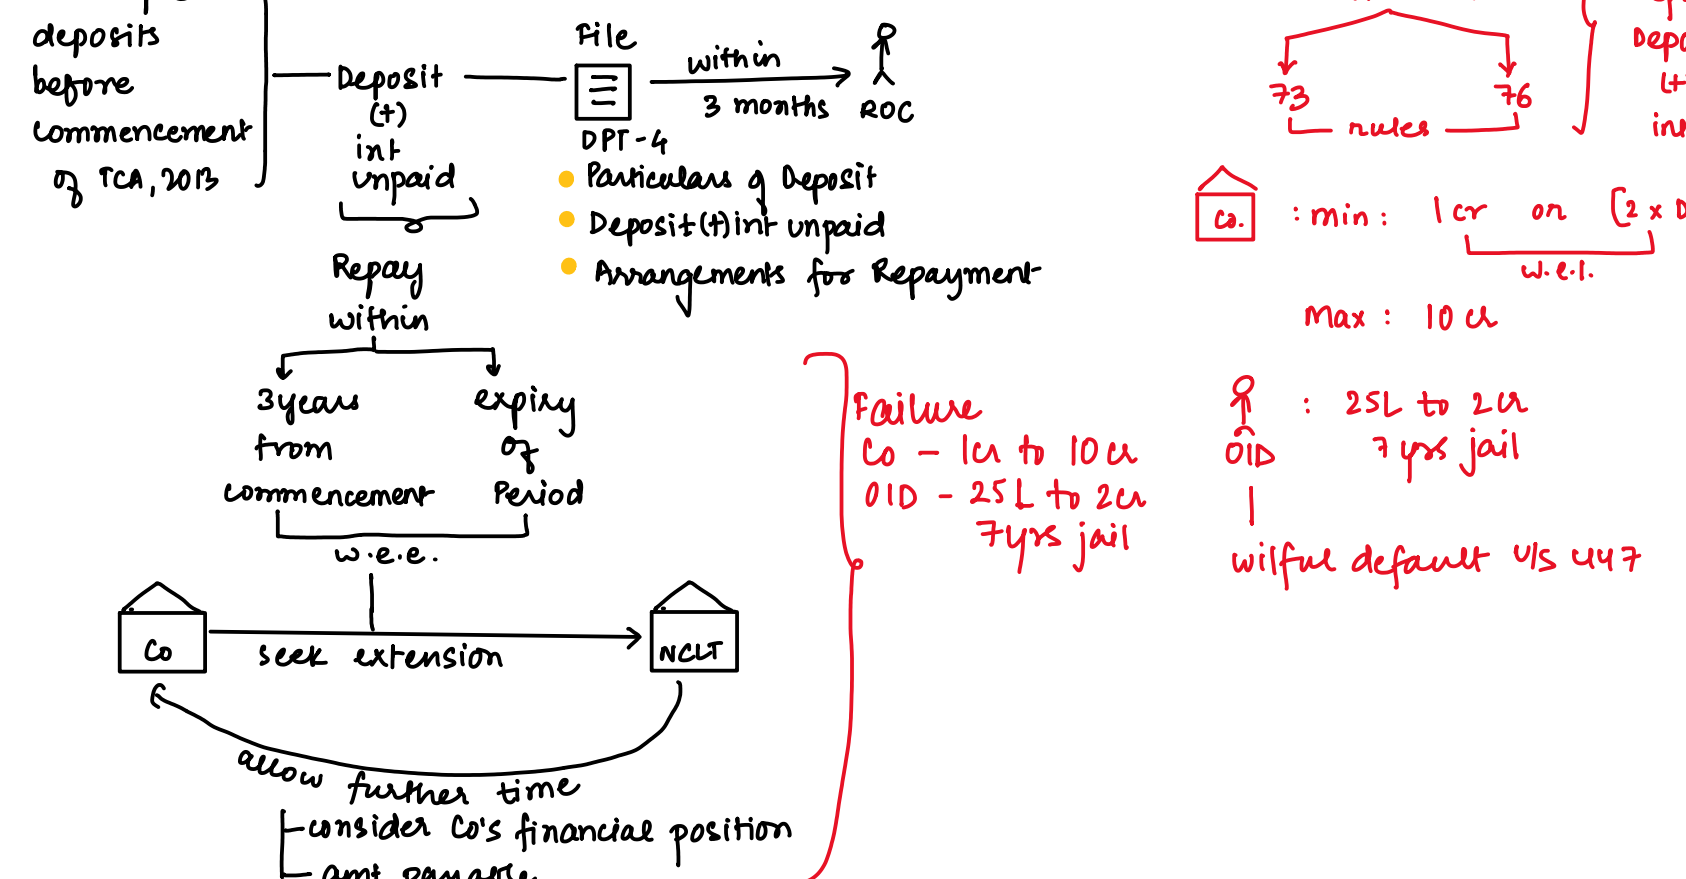 deposits
before
commencement
of TCA, 2013
Deposit
(+)
int
unpaid
File
DPT-4
within
3 months
ROC
Particulars of Deposit
Deposit (+) int unpaid
Arrangements for Repayment
Repay
within
3 years
from
commencement
expiry
of
Period
w.e.e.
Co
seek extension
NCLT
allow further time
consider Co's financial position
amt payable
Failure
Co - 1cr to 10 cr
OID - 25L to 2cr
7yrs jail
73
76
rules
Co.
: min : 1 cr or [2 x D
w.e.l.
Max : 10 cr
OID
: 25L to 2cr
7 yrs jail
wilful default u/s 447
Depo
(+)
in